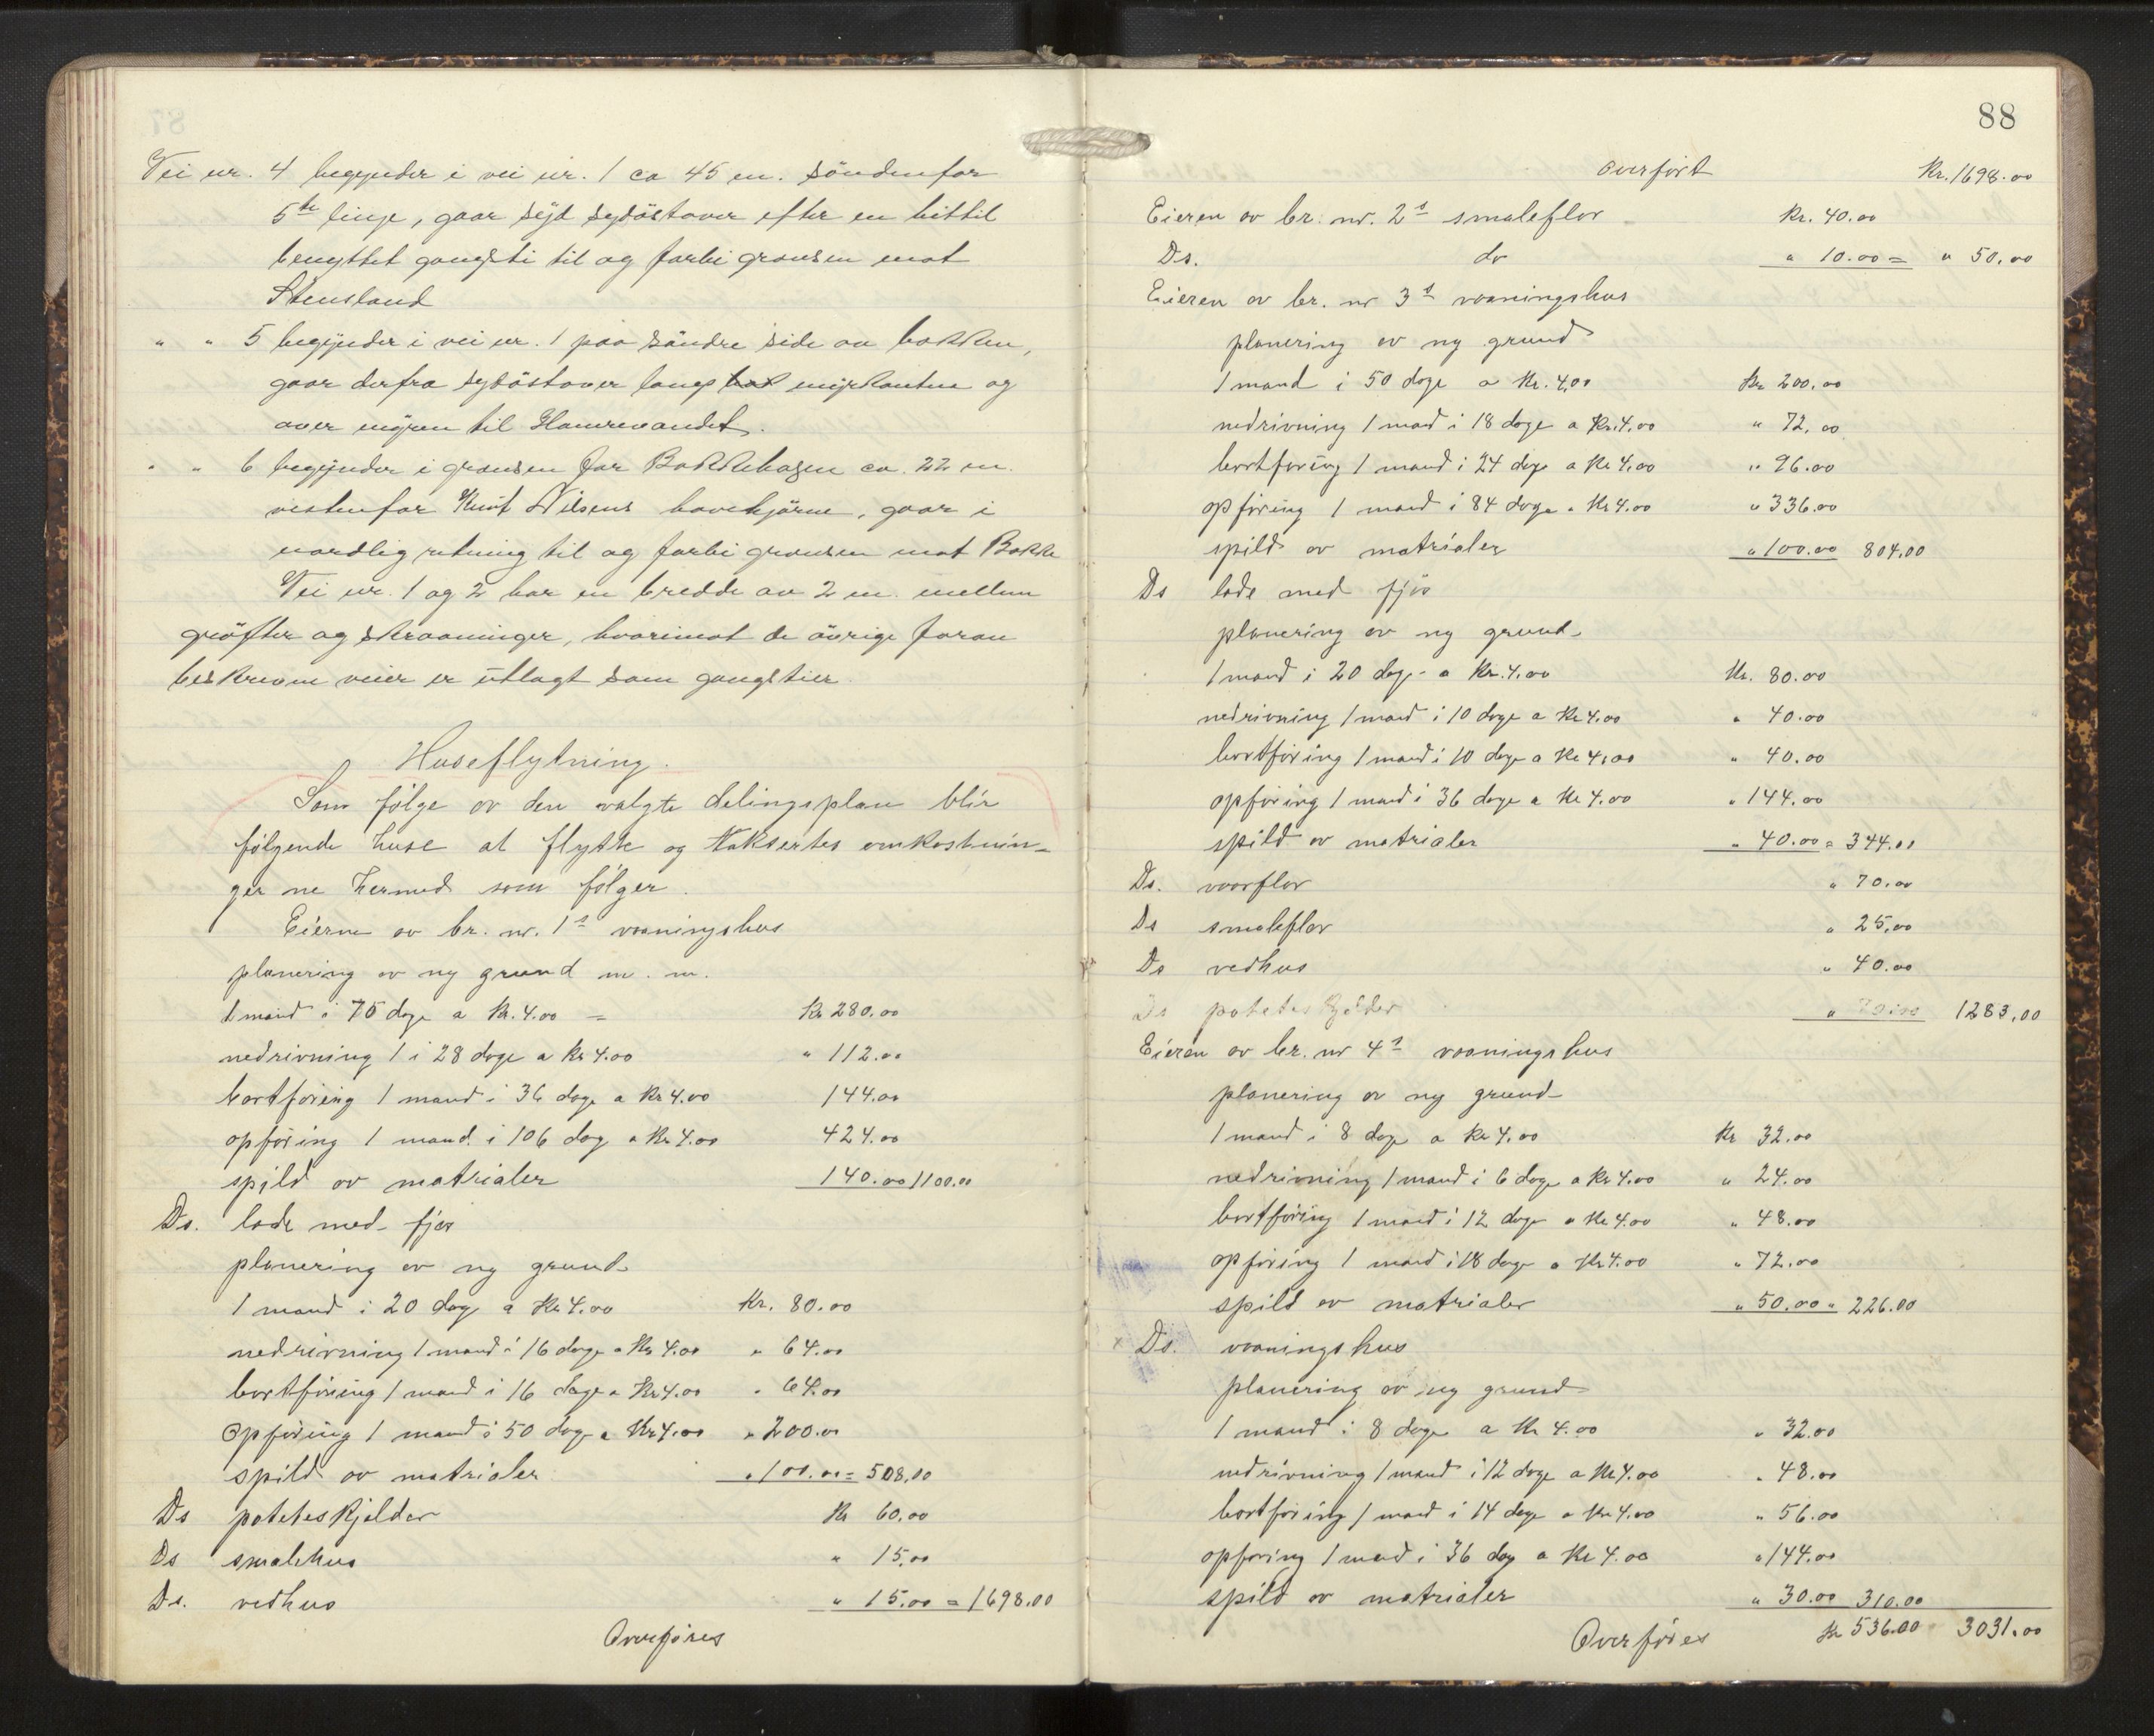 Vei nr. 4 begynder i vei nr. 1 ca 45 m. söndenfor
5te linje, gaar syd sydöstover efter en hittil
benyttet gangsti til og forbi grænsen mot
Stensland
" " 5 begynder i vei nr. 1 paa söndre side av bakken,
gaar derfra sydöstover langs myrkanten og
over myren til Hamrevandet.
" " 6 begynder i grænsen for Bakkehagen ca. 22 m.
vestenfor Knut Nilsens havehjörne, gaar i
nordlig retning til og forbi grænsen mot Bakke
Vei nr. 1 og 2 har en bredde av 2 m. mellem
gröfter og skraaninger, hvorimot de övrige foran
beskrevne veier er utlagt som gangstier.
Huseflytning.
Som følge av den valgte delingsplan blir
følgende huse at flytte og taksertes omkostnin-
ger ne hermed som følger.
Eieren av br. nr. 1s vaaningshus
planering av ny grund m. m.
1 mand i 70 dage a Kr. 4.00 = Kr 280.00
nedrivning 1 i 28 dage a Kr 4.00 " 112.00
bortføring 1 mand i 36 dage a Kr 4.00 144.00
opføring 1 mand i 106 dag a Kr 4.00 424.00
spild av matrialer 140.00 1100.00
Do. lade med fjøs
planering av ny grund
1 mand i 20 dage a Kr 4.00 Kr. 80.00
nedrivning 1 mand i 16 dage a Kr 4.00 " 64.00
bortføring 1 mand i 16 dage a Kr 4.00 " 64.00
Opføring 1 mand i 50 dage a Kr 4.00 " 200.00
spild av matrialer " 100.00 = 508.00
Do poteteskjelder Kr 60.00
Do smalehus " 15.00
Do. vedhus " 15.00 = 1698.00
Overføres
88
overført Kr. 1698.00
Eieren av br. nr. 2s smaleflor Kr. 40.00
Do. do " 10.00 = " 50.00
Eieren av br. nr 3s vaaningshus
planering av ny grund
1 mand i 50 dage a Kr. 4.00 Kr 200.00
nedrivning 1 mand i 18 dage a Kr. 4.00 " 72.00
bortføring 1 mand i 24 dage a Kr 4.00 " 96.00
opføring 1 mand i 84 dage a Kr 4.00 " 336.00
spild av matrialer " 100.00 804.00
Do lade med fjøs
planering av ny grund
1 mand i 20 dage a Kr. 4.00 Kr. 80.00
nedrivning 1 mand i 10 dage a Kr 4.00 " 40.00
bortføring 1 mand i 10 dage a Kr 4.00 " 40.00
opføring 1 mand i 36 dage a Kr 4.00 " 144.00
spild av matrialer " 40.00 = 344.00
Do. vaarflor " 70.00
Do smaleflor " 25.00
Do vedhus " 40.00
Do poteteskjelder " 1283.00
Eieren av br. nr 4s vaaningshus
planering av ny grund
1 mand i 8 dage a Kr 4.00 Kr 32.00
nedrivning 1 mand i 6 dage a Kr 4.00 " 24.00
bortføring 1 mand i 12 dage a Kr 4.00 " 48.00
opføring 1 mand i 18 dage a Kr 4.00 " 72.00
spild av matrialer " 50.00 " 226.00
x Do. vaaningshus
planering av ny grund
1 mand i 8 dage a Kr 4.00 " 32.00
nedrivning 1 mand i 12 dage a Kr 4.00 " 48.00
bortføring 1 mand i 14 dage a Kr 4.00 " 56.00
opføring 1 mand i 36 dag a Kr 4.00 " 144.00
spild av matrialer " 30.00 310.00
Overføres Kr 536.00 3031.00